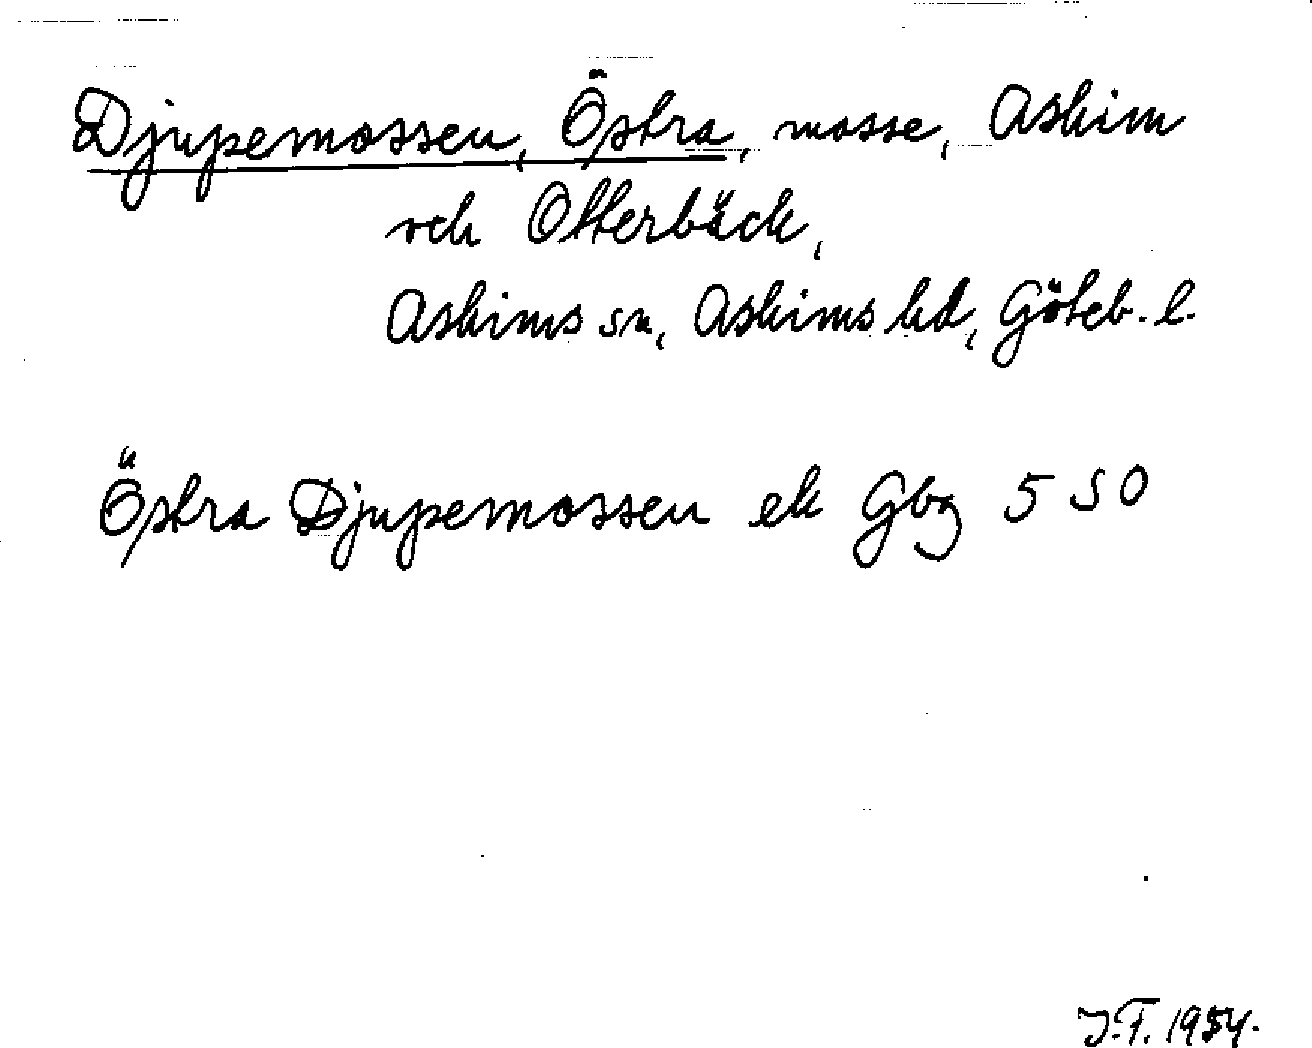 Djupemossen, Östra, mosse, Askim
och Otterbäck,
Askims sn, Askims hd, Göteb. l.
Östra Djupemossen ek Gbg 5 SO
J.F. 1954.